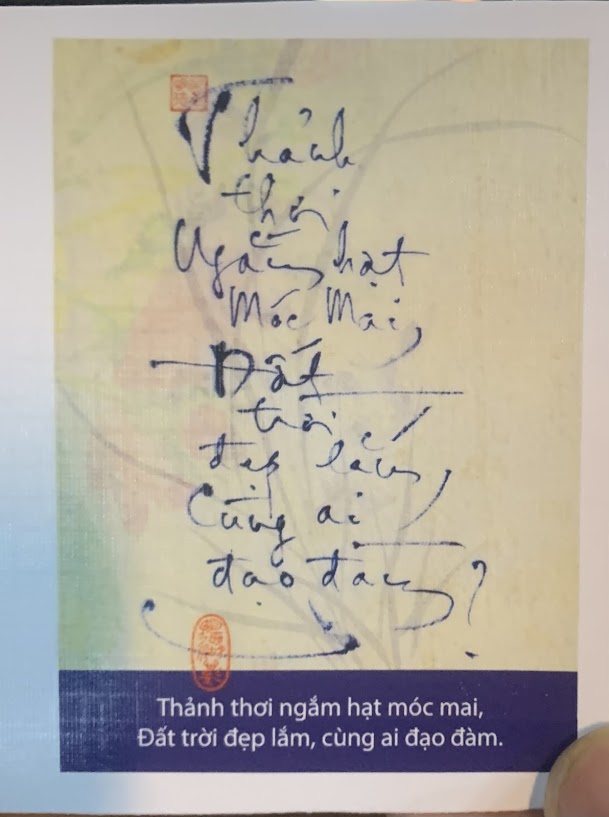 Thảnh
thơi
Ngắm hạt
Móc Mai,
Đất
trời
đẹp lắm,
Cùng ai
đạo đàm?
Thảnh thơi ngắm hạt móc mai,
Đất trời đẹp lắm, cùng ai đạo đàm.